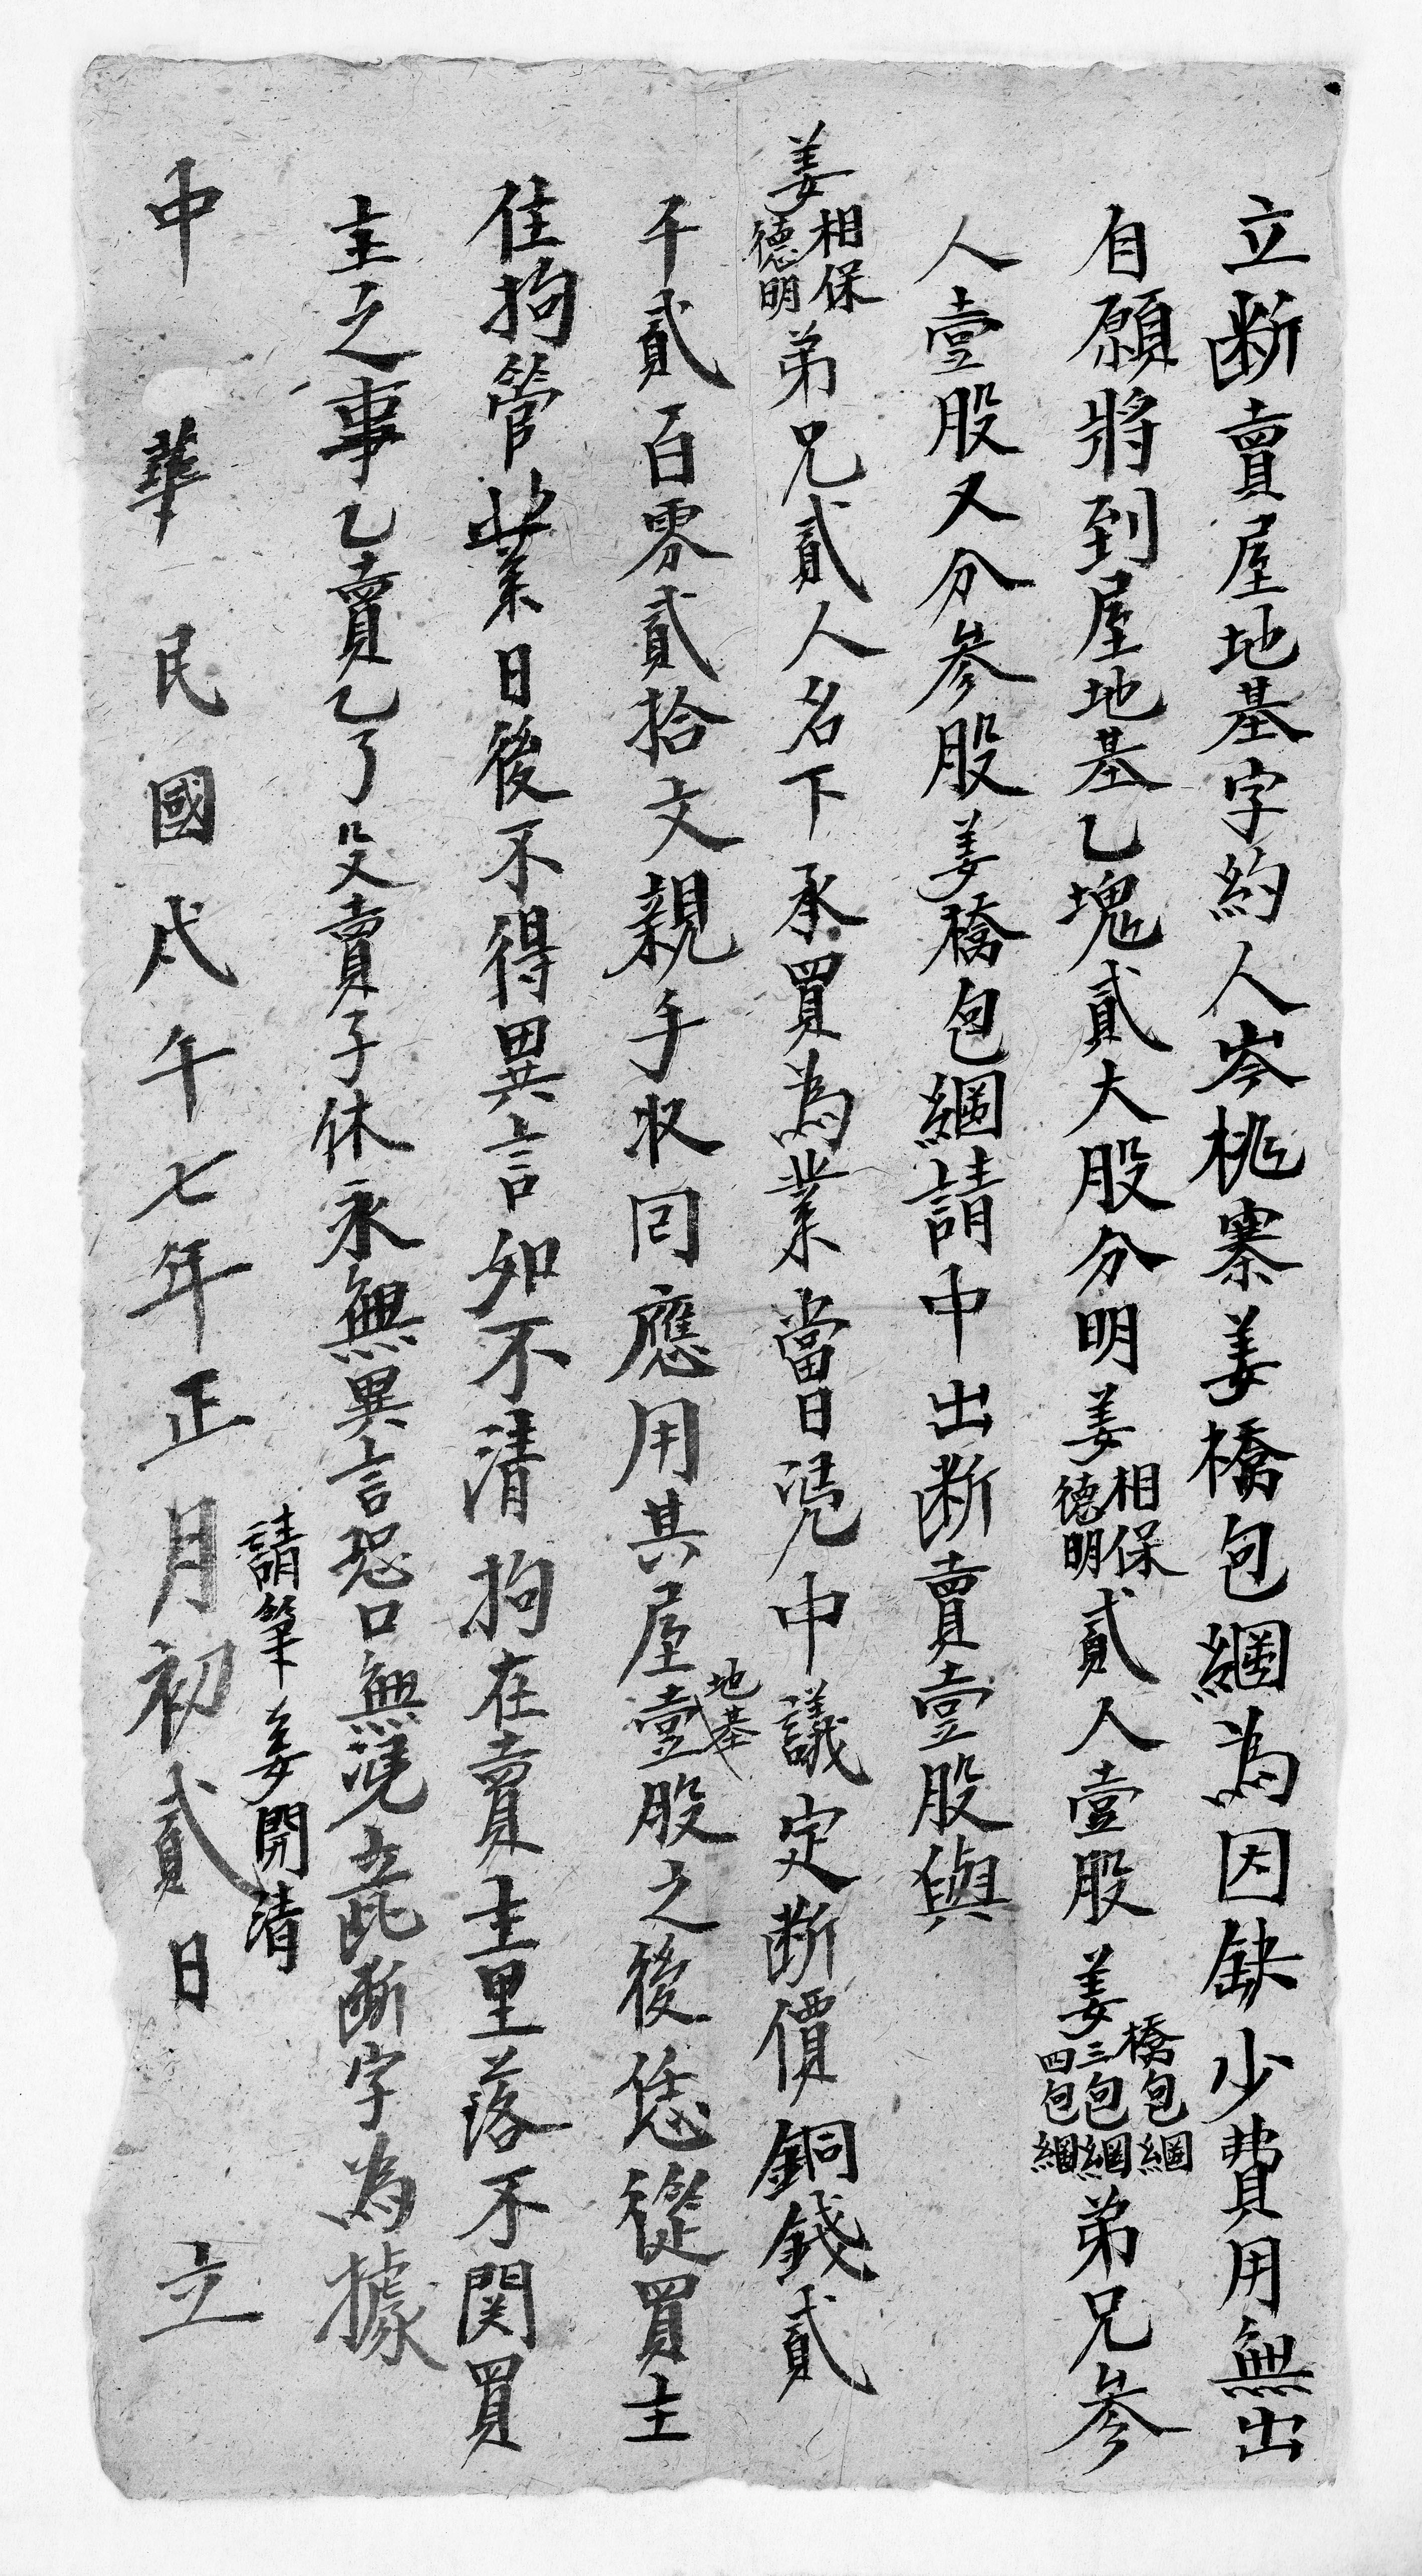 立断賣屋地基字約人岑桃寨姜橋包綱為因缺少費用無出
自願將到屋地基乙塊貳大股分明姜相保德明貳人壹股姜橋包綱三包綱四包綱弟兄參
人壹股又分參股姜橋包綱請中出断賣壹股與
姜相保德明弟兄貳人名下承買為業當日凴中議定断價銅錢貳
千貳百零貳拾文親手收回應用其屋地基壹股之後恁從買主
住拘管業日後不得異言如不清拘在賣主里落不関買
主之事乙賣乙了父賣子休永無異言恐口無凴立此断字為據
請筆姜開清
中華民國戊午七年正月初貳日立